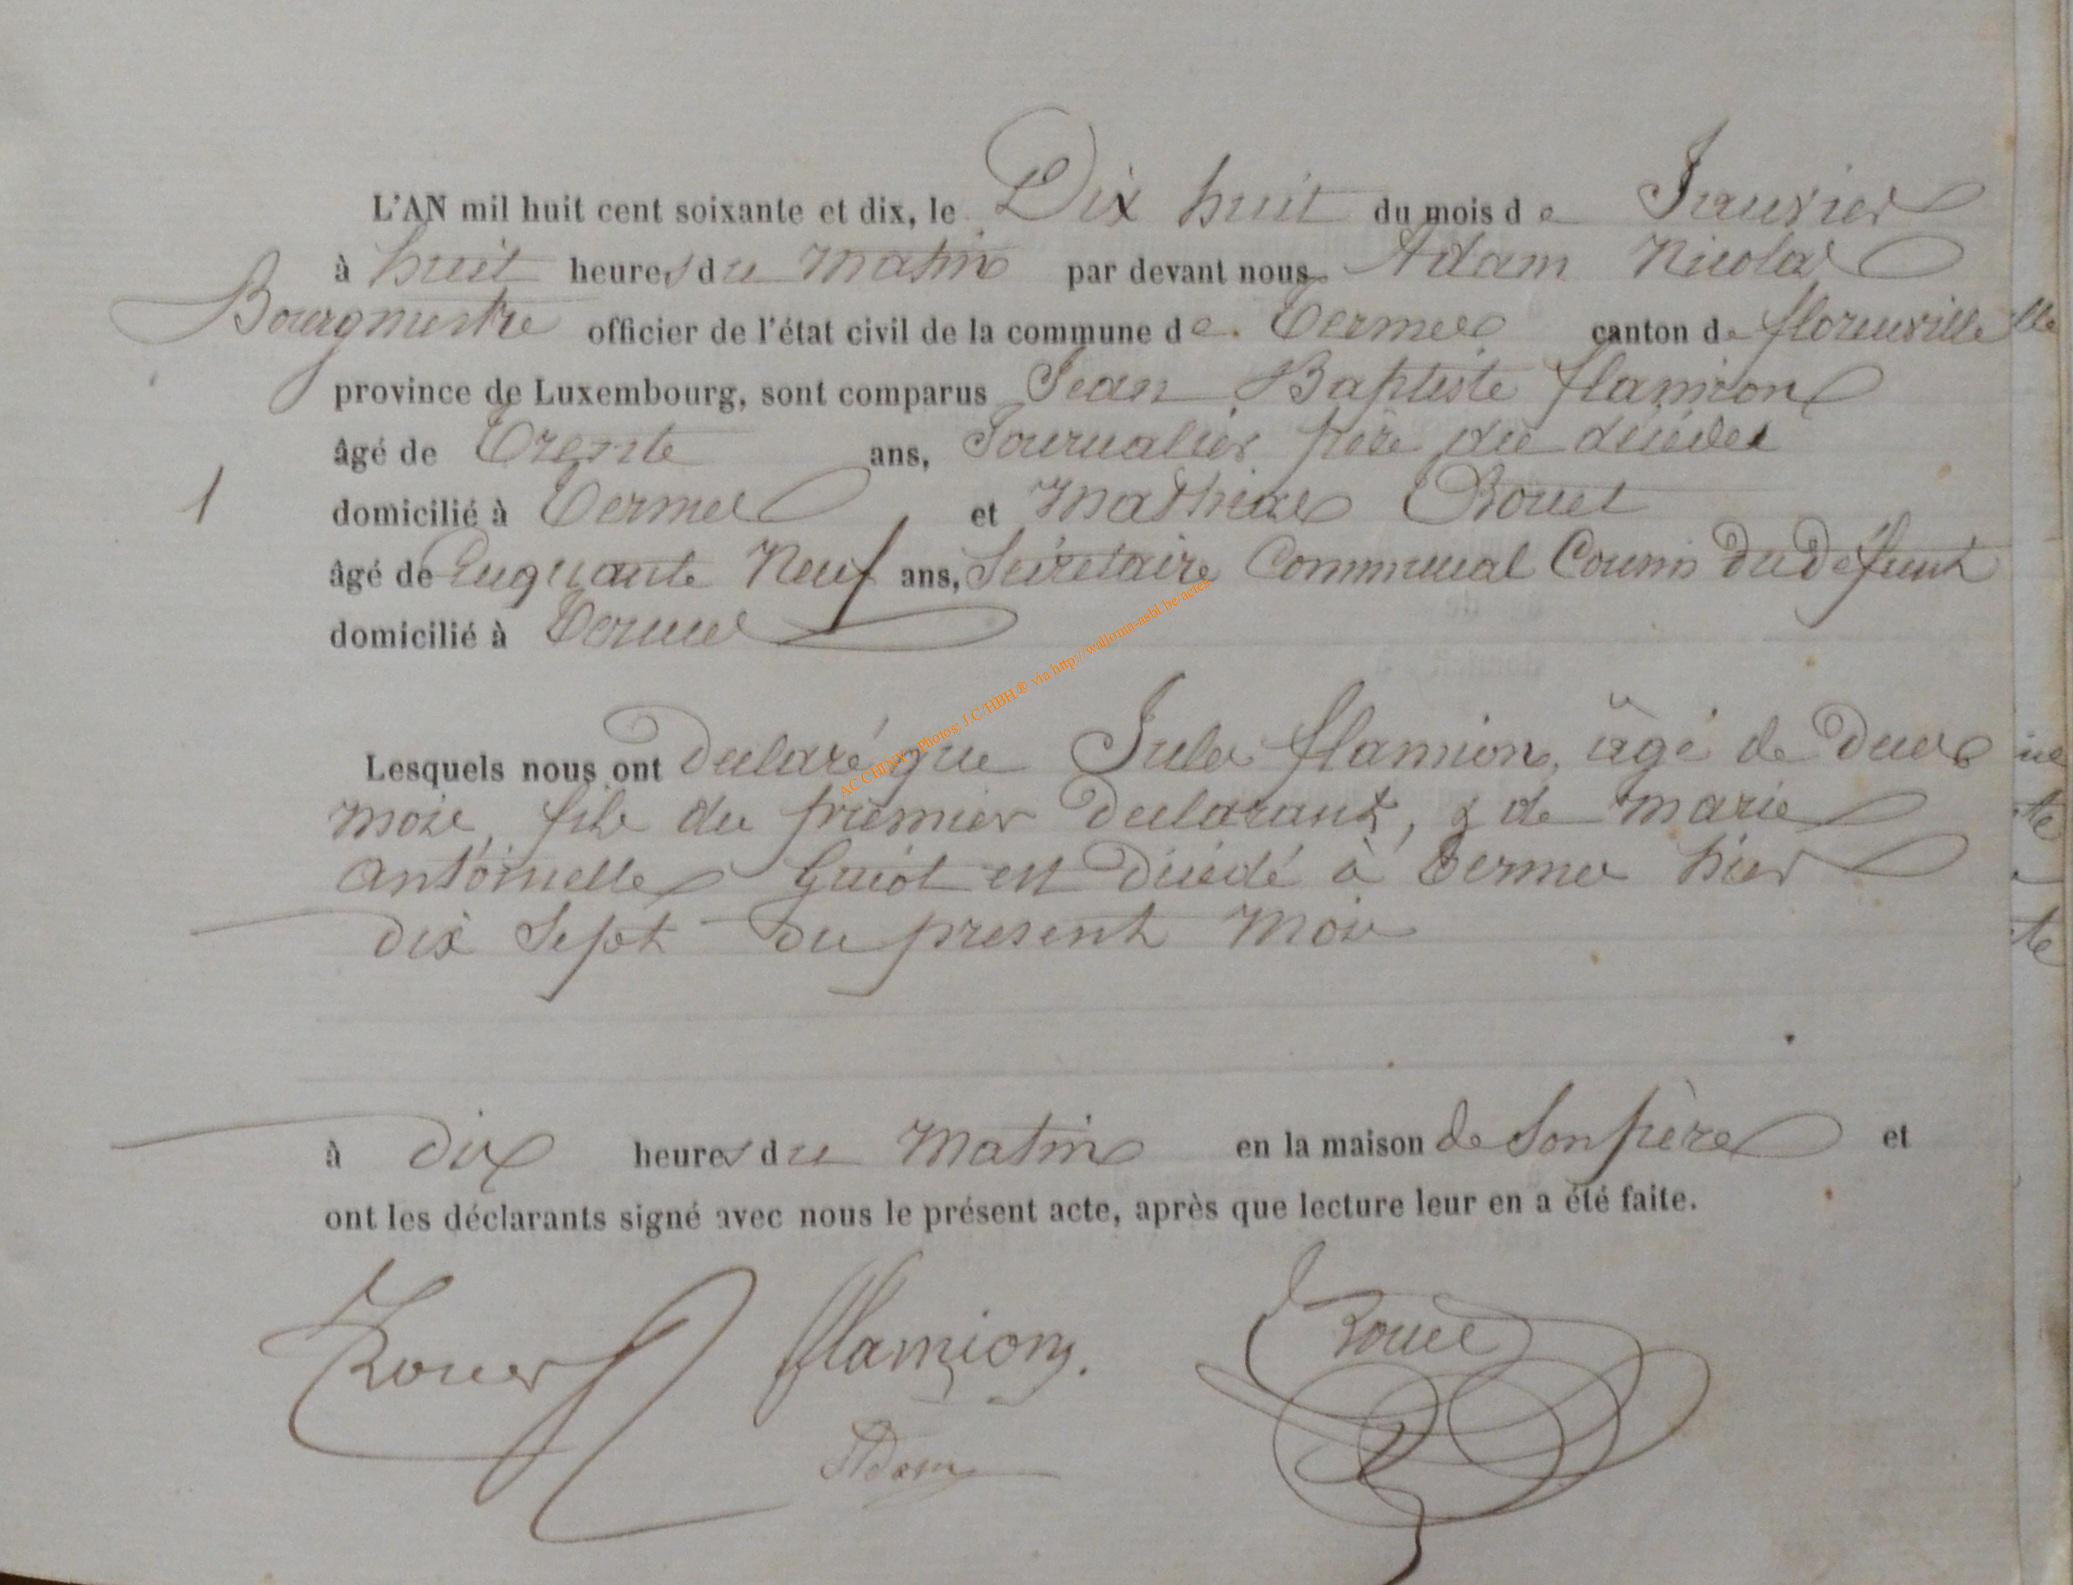 L'AN mil huit cent soixante et dix, le Dix huit du mois de Janvier
à huit heures du matin par devant nous Adam Nicolas
Bourgmestre officier de l'état civil de la commune de Termes canton de florenville
province de Luxembourg, sont comparus Jean Baptiste flamion
âgé de Trente ans, Journalier père du décédé
1 domicilié à Termes et Mathias Rouet
âgé de Cinquante Neuf ans, Sécrétaire Communal Cousin du Défunt
domicilié à Termes
Lesquels nous ont Déclaré que Jules flamion, âgé de Deux
mois, fils du premier Déclarant, & de marie
antoinette Guiot est Décédé à Termes hier
dix Sept du present Mois
à Dix heures du Matin en la maison de Son père et
ont les déclarants signé avec nous le présent acte, après que lecture leur en a été faite.
flamion. Rouet
Adam
AC CHINY - Photos J.C/HBH® via http://wallonia-asbl.be/actes